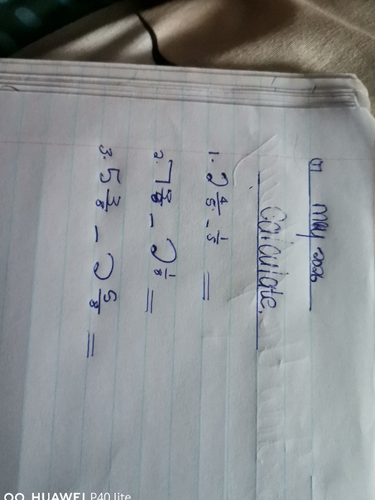 07 May 2026
Calculate.
1. 2 4/5 - 1/5 =
2. 7 7/8 - 2 1/8 =
3. 5 3/8 - 2 5/8 =
HUAWEI P40 lite